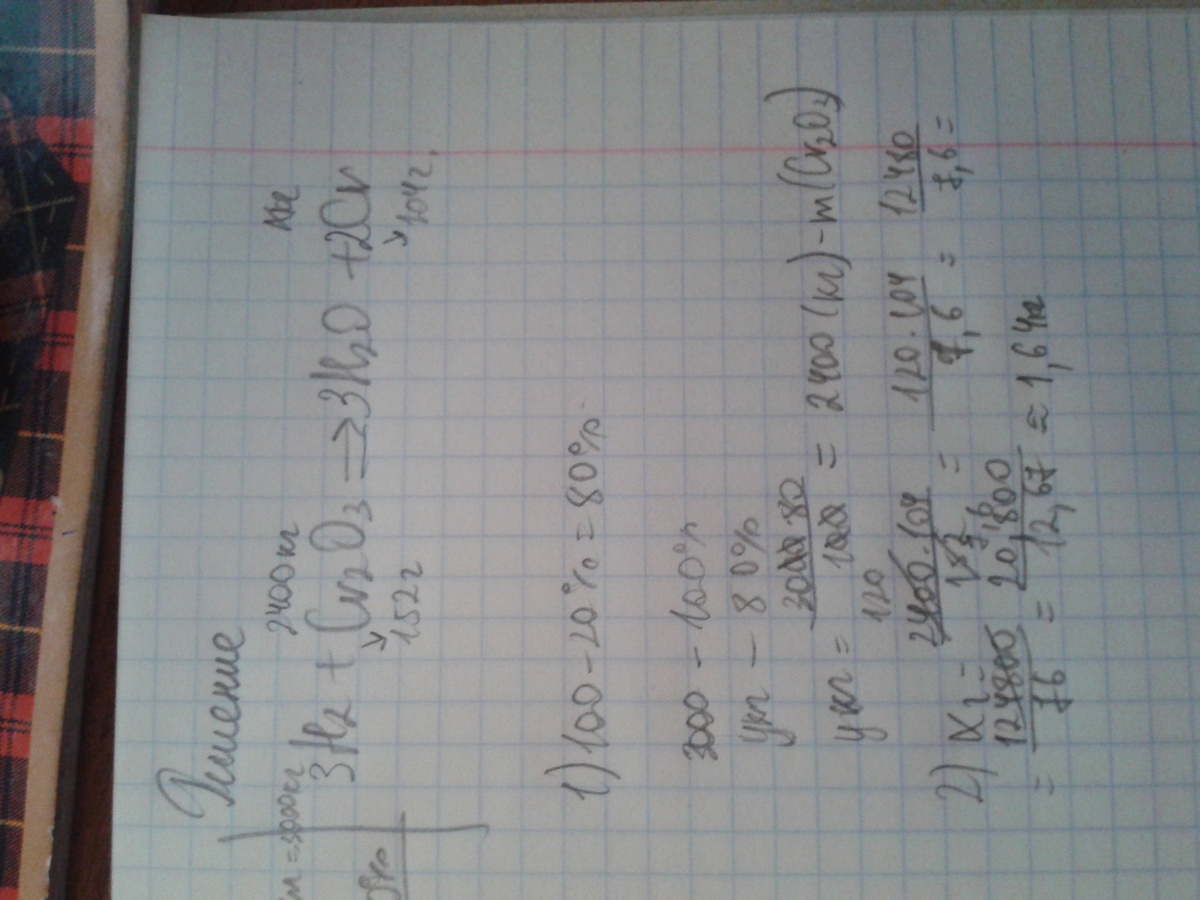 Решение
m = 3000кг
2400кг xкг
3H₂ + Cr₂O₃ ⟹ 3H₂O + 2Cr
152г 104г.
1) 100 - 20% = 80%.
3000 - 100%
yкг - 80%
yкг = 3000·80 / 100 = 2400 (кг) - m(Cr₂O₃)
120
2) xг = 2400·104 / 152 = 120·104 / 7,6 = 12480 / 7,6 =
7,6
= 124800 / 76 = 20800 / 12,67 ≈ 1,64кг